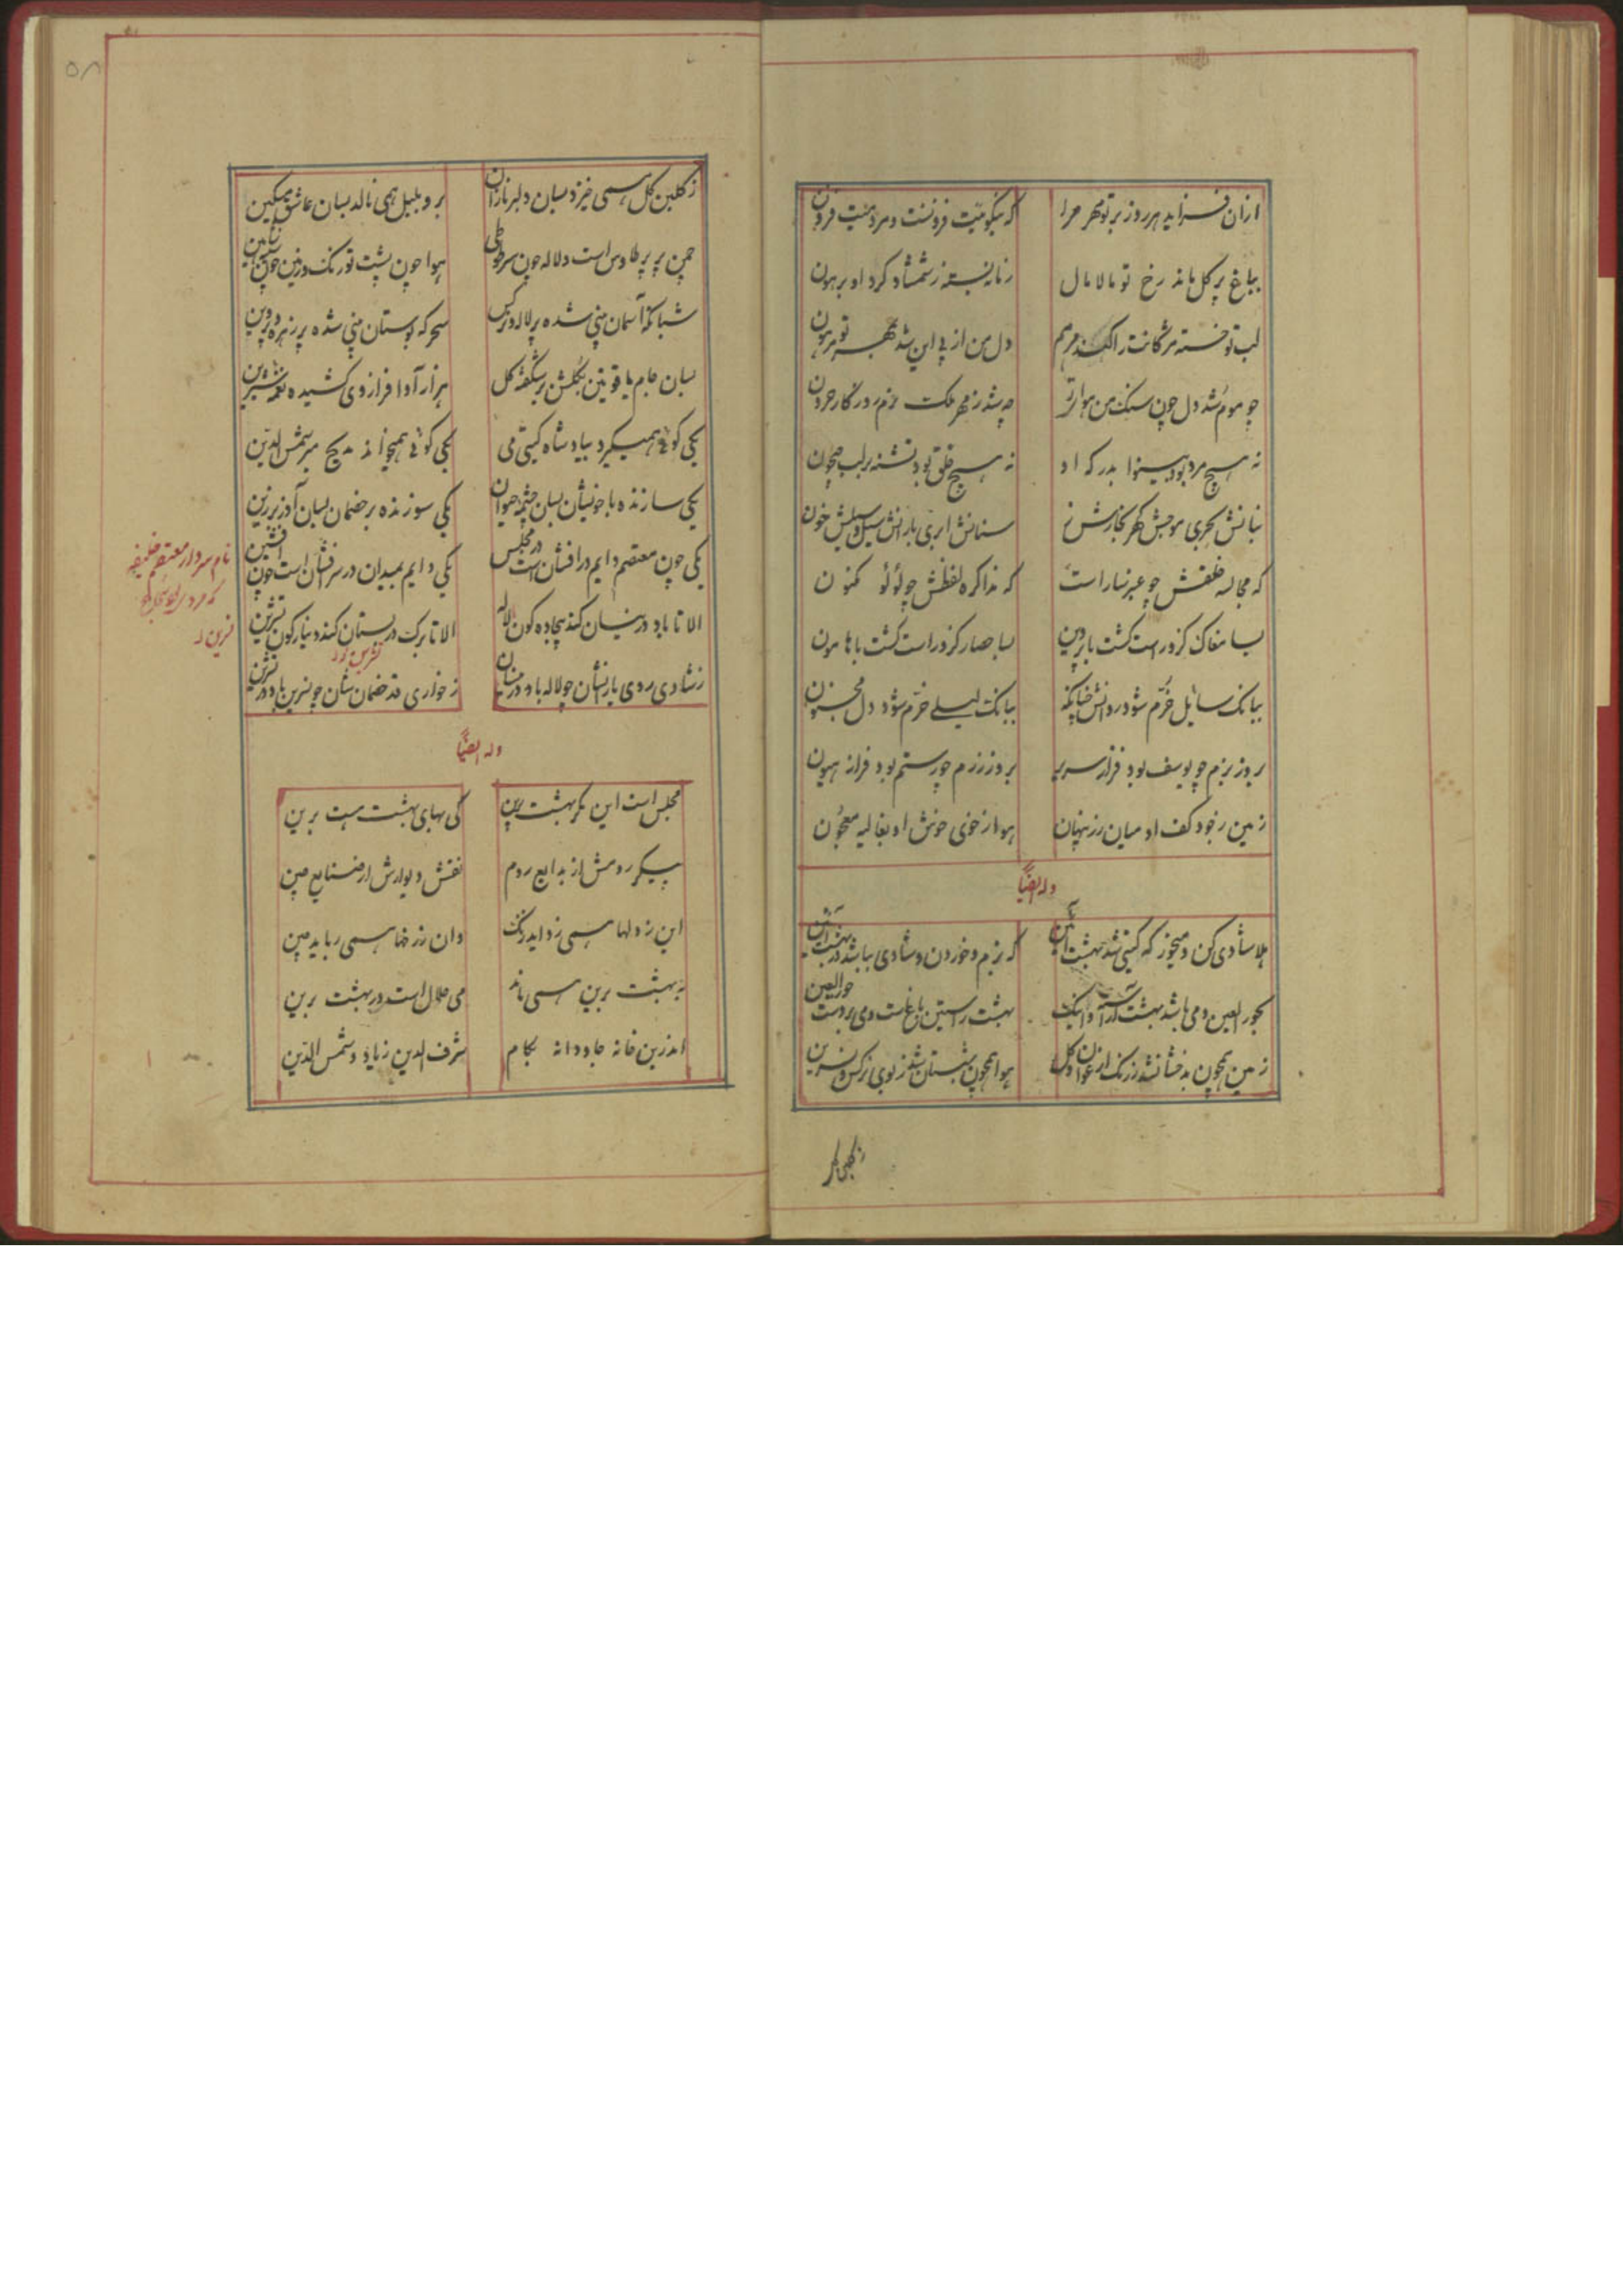 ازان فزاید هر روز بر تو مهر مرا
که نیکوئیت فزونست و مردمیت فزون
بباغ پر گل ماند رخ تو مالامال
زمانه بسته ز شمشاد گرد او پرهون
لب تو خسته مژگانت را کند مرهم
دل من از پی این شد بمهر تو مرهون
چو موم شد دل چون سنگ من
چه شد ز مهر ملک
نه هیچ مرد بود بینوا بدرگه او
نه هیچ خلق بود تشنه بر لب جیحون
بنانش بحری موجش گهر بخارش زر
سنانش ابری بارانش سیل و سیلش خون
گه مجالسه خلقش چو عنبر ساراست
گه مذاکره لفظش چو لؤلؤ مکنون
بسا مغاک کزو راست گشت با پروین
بسا حصار کزو راست گشت با هامون
ببانگ سایل خرم شود روانش چنانکه
ببانگ لیلی خرم شود دل مجنون
بروز بزم چو یوسف بود فراز سریر
بروز رزم چو رستم بود فراز هیون
زمین ز جود کف او میان زر پنهان
هوا ز خوی خوش او بغالیه معجون
وله ایضاً
هلا شادی کن و میخور که گیتی شد بهشت آیین
که بزم و خوردن و شادی بباشد در بهشت آیین
بحور العین و می باشد بهشت آراسته و اینک
بهشت راستین باغست و می بر دست حور العین
زمین همچون بدخشان شد ز رنگ ارغوان و گل
هوا همچون بتبستان شد ز بوی نرگس و نسرین
ز گلبن گل
۵۸
ز گلبن گل همی خیزد بسان دلبر نازان
برو بلبل همی نالد بسان عاشق مسکین
چمن پر پر طاوس است و لاله چون سر طوطی
هوا چون پشت تورنگ و زمین چون سینه شاهین
شبانگه آسمان بینی شده پر لاله و نرگس
سحرگه بوستان بینی شده پر زهره و پروین
بسان جام یاقوتین بگلشن بر شکفته گل
هزار آوا فراز وی کشیده نغمه شیرین
یکی گوئی همیگیرد بیاد شاه گیتی می
یکی گوئی همیخواند مدیح میر شمس الدین
یکی سازنده با خویشان بسان چشمه حیوان
یکی سوزنده بر خصمان بسان آذر برزین
یکی چون معتصم دایم در افشان است در مجلس
یکی دایم بمیدان در سر افشان است چون افشین
نام سردار معتصم خلیفه
الا تا باد در نیسان کند بیجاده گون لاله
الا تا برگ در بستان کند دینار گون تشرین
ز شادی روی یارانشان چو لاله باد در نیسان
ز خواری قد خصمانشان چو نسرین باد در تشرین
وله ایضاً
مجلس است این مگر بهشت برین
کی بهای بهشت هست برین
پیکر رومش از بدایع روم
نقش دیوارش از صنایع چین
این ز دلها همی زداید زنگ
وان ز رخها همی رباید چین
به بهشت برین همی ماند
می حلال است در بهشت برین
اندرین خانه جاودانه بکام
شرف الدین زیاد و شمس الدین